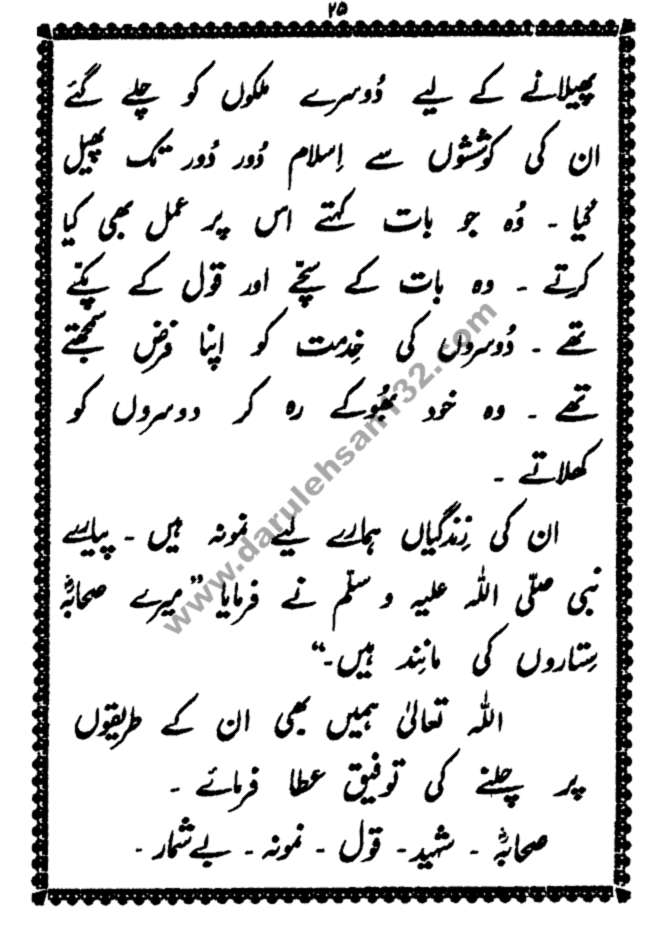 ۲۵
پھیلانے کے لیے دُوسرے ملکوں کو چلے گئے
ان کی کوششوں سے اِسلام دُور دُور تک پھیل
گیا ۔ وُہ جو بات کہتے اس پر عمل بھی کیا
کرتے ۔ وہ بات کے سچّے اور قول کے پکّے
تھے ۔ دُوسروں کی خِدمت کو اپنا فرض سمجھتے
تھے ۔ وہ خود بھُوکے رہ کر دوسروں کو
کھلاتے ۔
ان کی زِندگیاں ہمارے لیے نمونہ ہیں ۔ پیارے
نبی صلّی اللہ علیہ و سلّم نے فرمایا ”میرے صحابہؓ
سِتاروں کی مانِند ہیں۔“
اللہ تعالیٰ ہمیں بھی ان کے طریقوں
پر چلنے کی توفیق عطا فرمائے ۔
صحابہؓ ۔ شہید ۔ قول ۔ نمونہ ۔ بےشمار ۔
www.darulehsan132.com